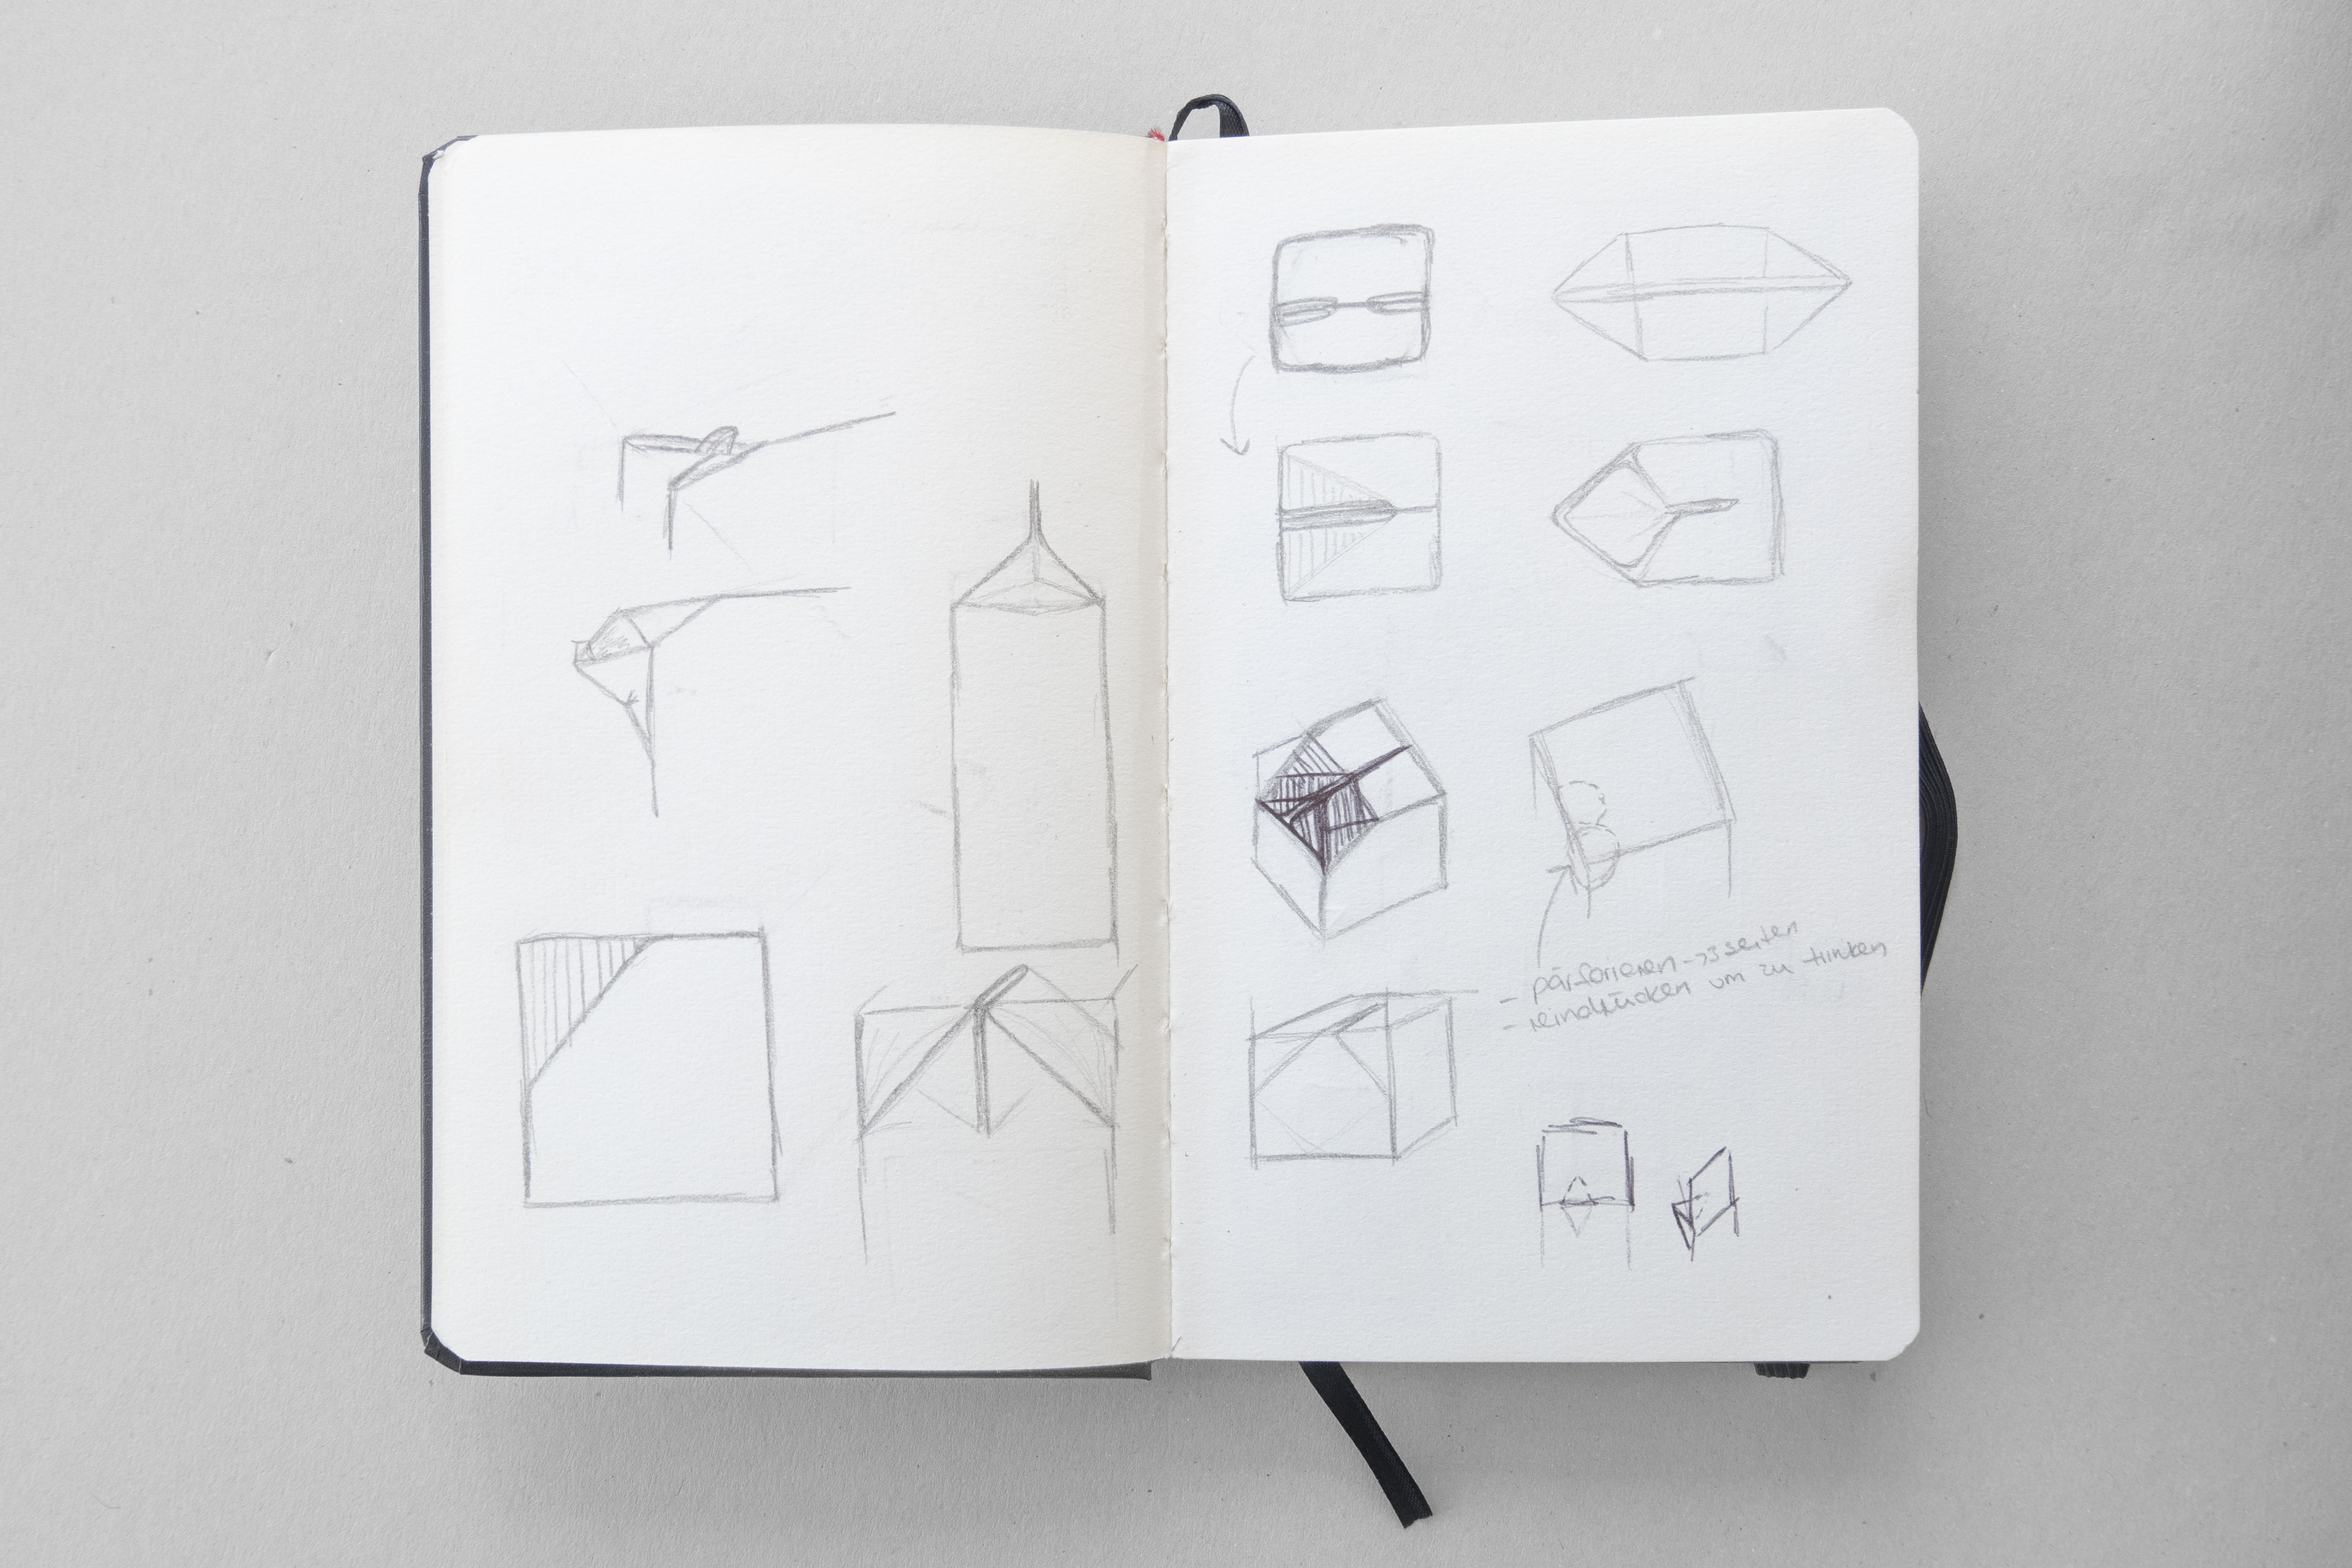 - pärforieren -> 3 seiten
- reindrücken um zu trinken